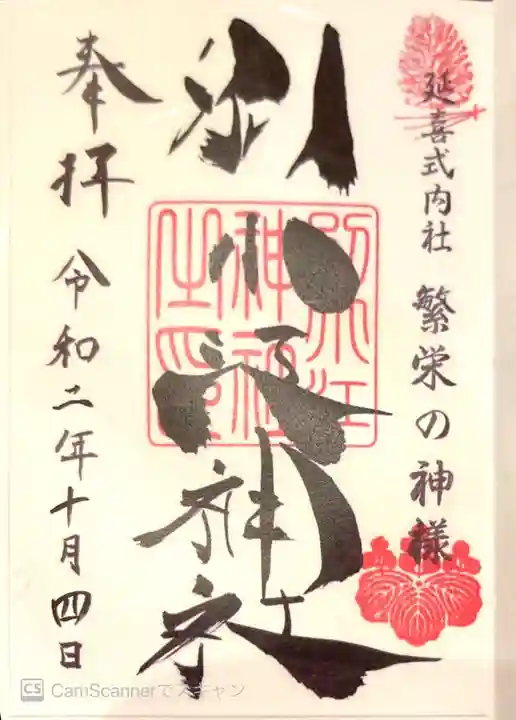 延喜式内社 繁栄の神様
別小江神社
奉拝 令和二年十月四日
神社
之印
CS CamScannerでスキャン